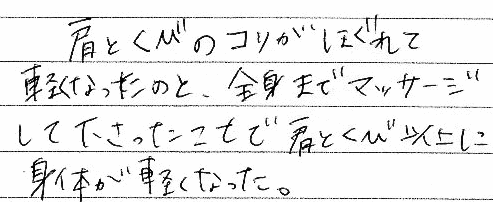 肩とくびのコリがほぐれて
軽くなったのと、全身までマッサージ
して下さったことで肩とくび以上に
身体が軽くなった。